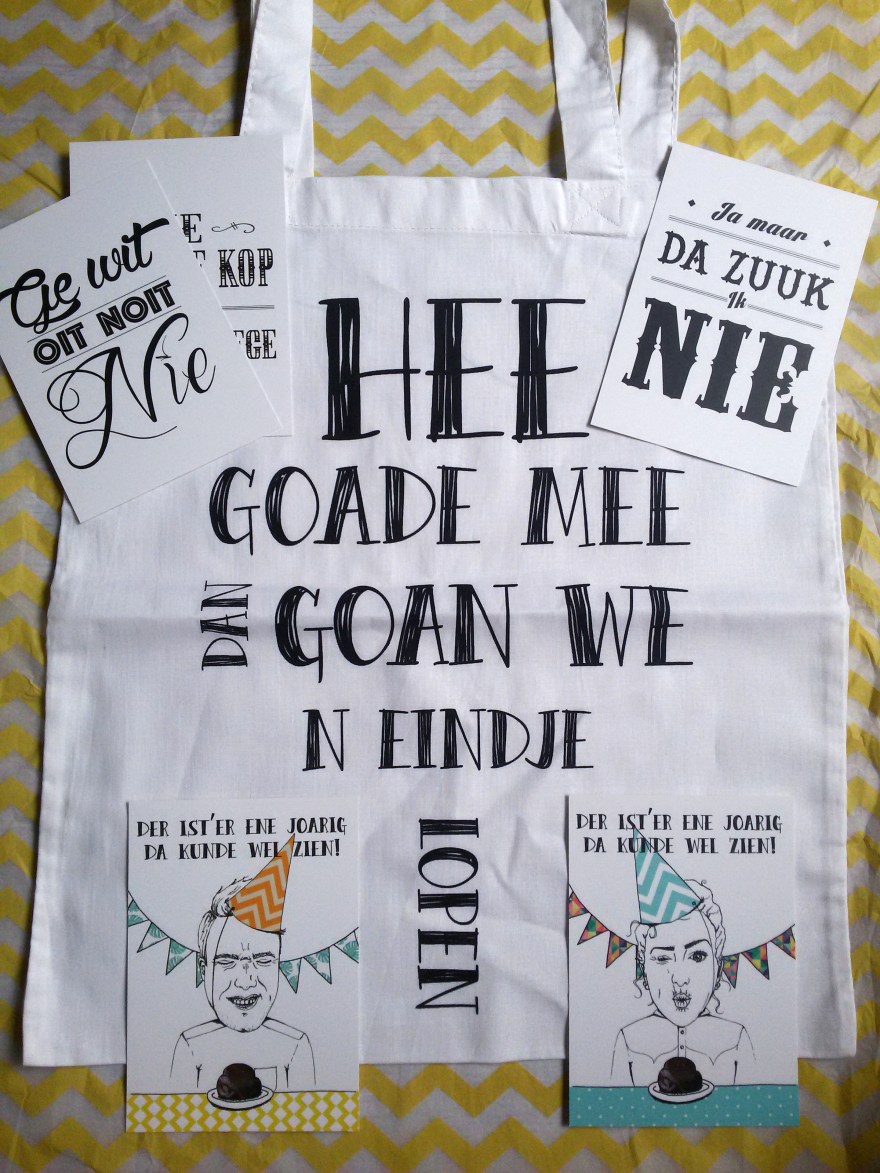 Ge wit
OIT NOIT
Nie
KOP
Ja maar
DA ZUUK
Ik
NIE
HEE
GOADE MEE
DAN GOAN WE
N EINDJE
LOPEN
DER IST'ER ENE JOARIG
DA KUNDE WEL ZIEN!
DER IST'ER ENE JOARIG
DA KUNDE WEL ZIEN!